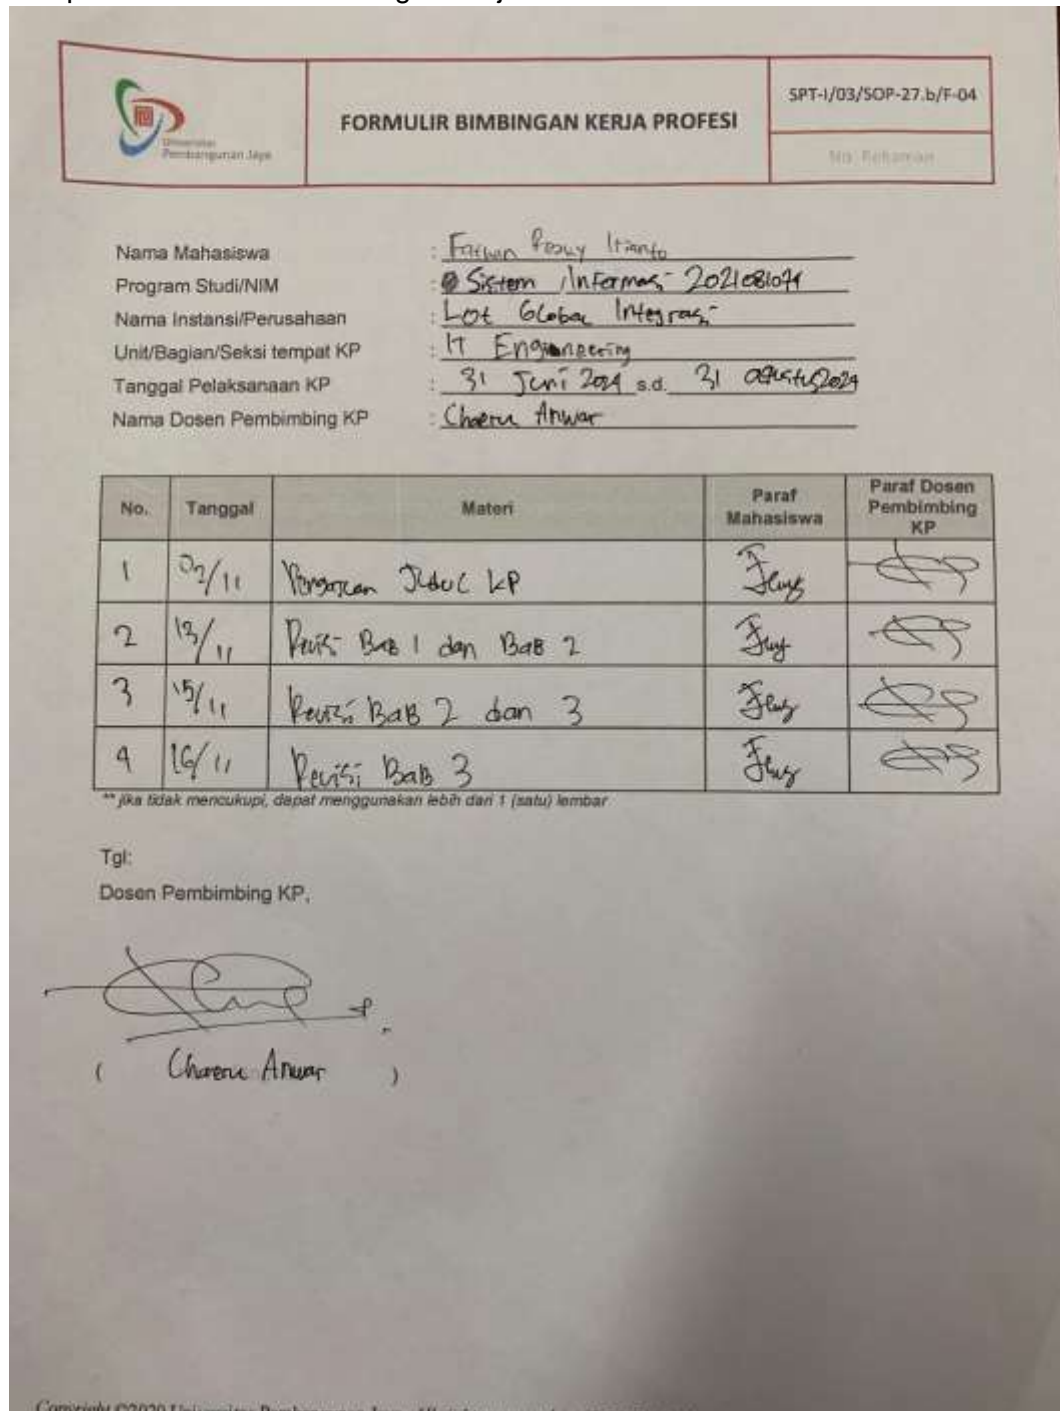 Universitas
Pembangunan Jaya
FORMULIR BIMBINGAN KERJA PROFESI
SPT-I/03/SOP-27.b/F-04
No. Rekaman
Nama Mahasiswa : Itianto
Program Studi/NIM : Sistem Informasi 2021081074
Nama Instansi/Perusahaan : Lot Global Integrasi
Unit/Bagian/Seksi tempat KP : IT Engineering
Tanggal Pelaksanaan KP : 31 Juni 2024 s.d. 31 agustus 2024
Nama Dosen Pembimbing KP : Chaeru Anwar
No. Tanggal Materi Paraf Mahasiswa Paraf Dosen Pembimbing KP
1 02/11 Pengajuan Judul KP
2 13/11 Revisi Bab 1 dan Bab 2
3 15/11 Revisi Bab 2 dan 3
4 16/11 Revisi Bab 3
** jika tidak mencukupi, dapat menggunakan lebih dari 1 (satu) lembar
Tgl:
Dosen Pembimbing KP,
( Chaeru Anwar )